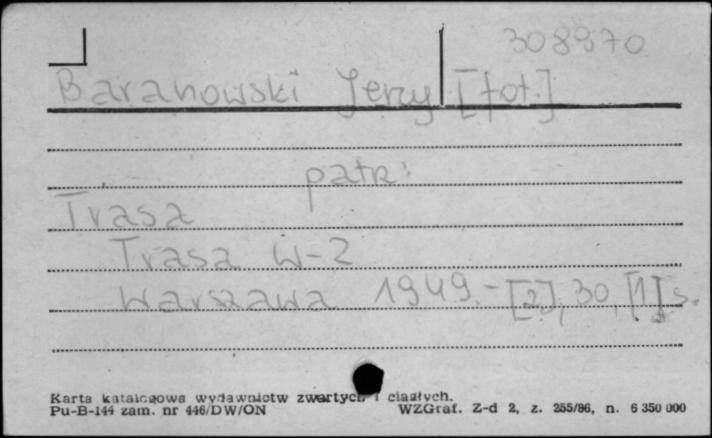 308970
Baranowski Jerzy [fot.]
patrz:
Trasa
Trasa W-Z
Warszawa 1949. - [2], 30, [1] s.
Karta katalogowa wydawnictw zwartych i ciągłych.
Pu-B-144 zam. nr 446/DW/ON WZGraf. Z-d 2, z. 255/86, n. 6 350 000